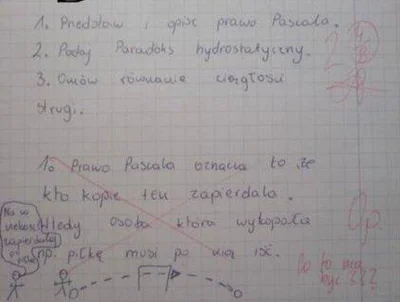 1. Przedstaw i opisz prawo Pascala.
2. Podaj Paradoks hydrostatyczny.
3. Omów równanie ciągłości
strugi.
1. Prawo Pascala oznacza to że
kto kopie ten zapierdala.
Wtedy osoba która wykopała
np. piłkę musi po nią iść.
No w
zapierdala
0p.
Co to ma
być ???